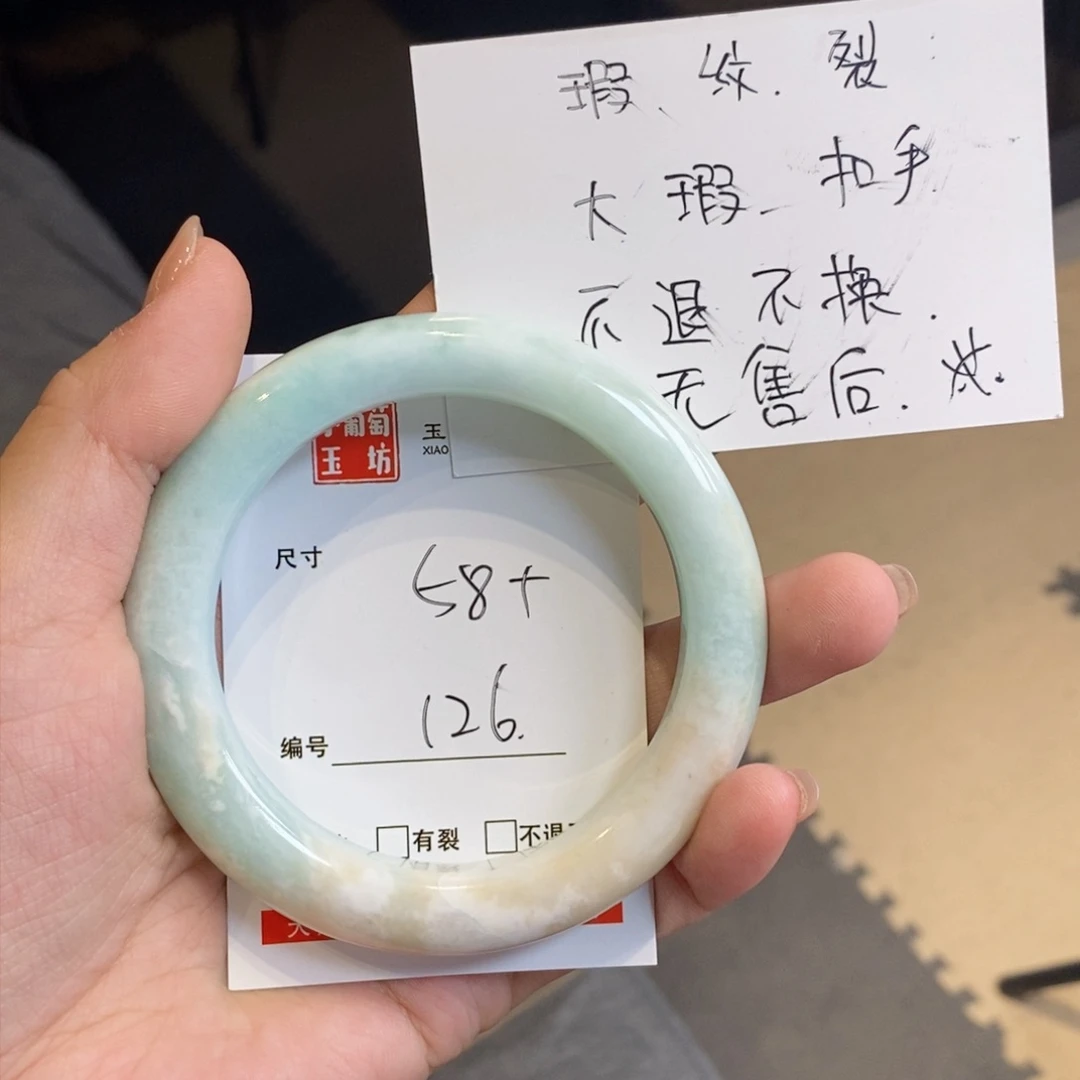 瑕、纹、裂
大瑕 扣手
不退不换.
无售后.
葡萄
玉坊
玉
XIAO
尺寸 58+
编号 126.
有裂 不退